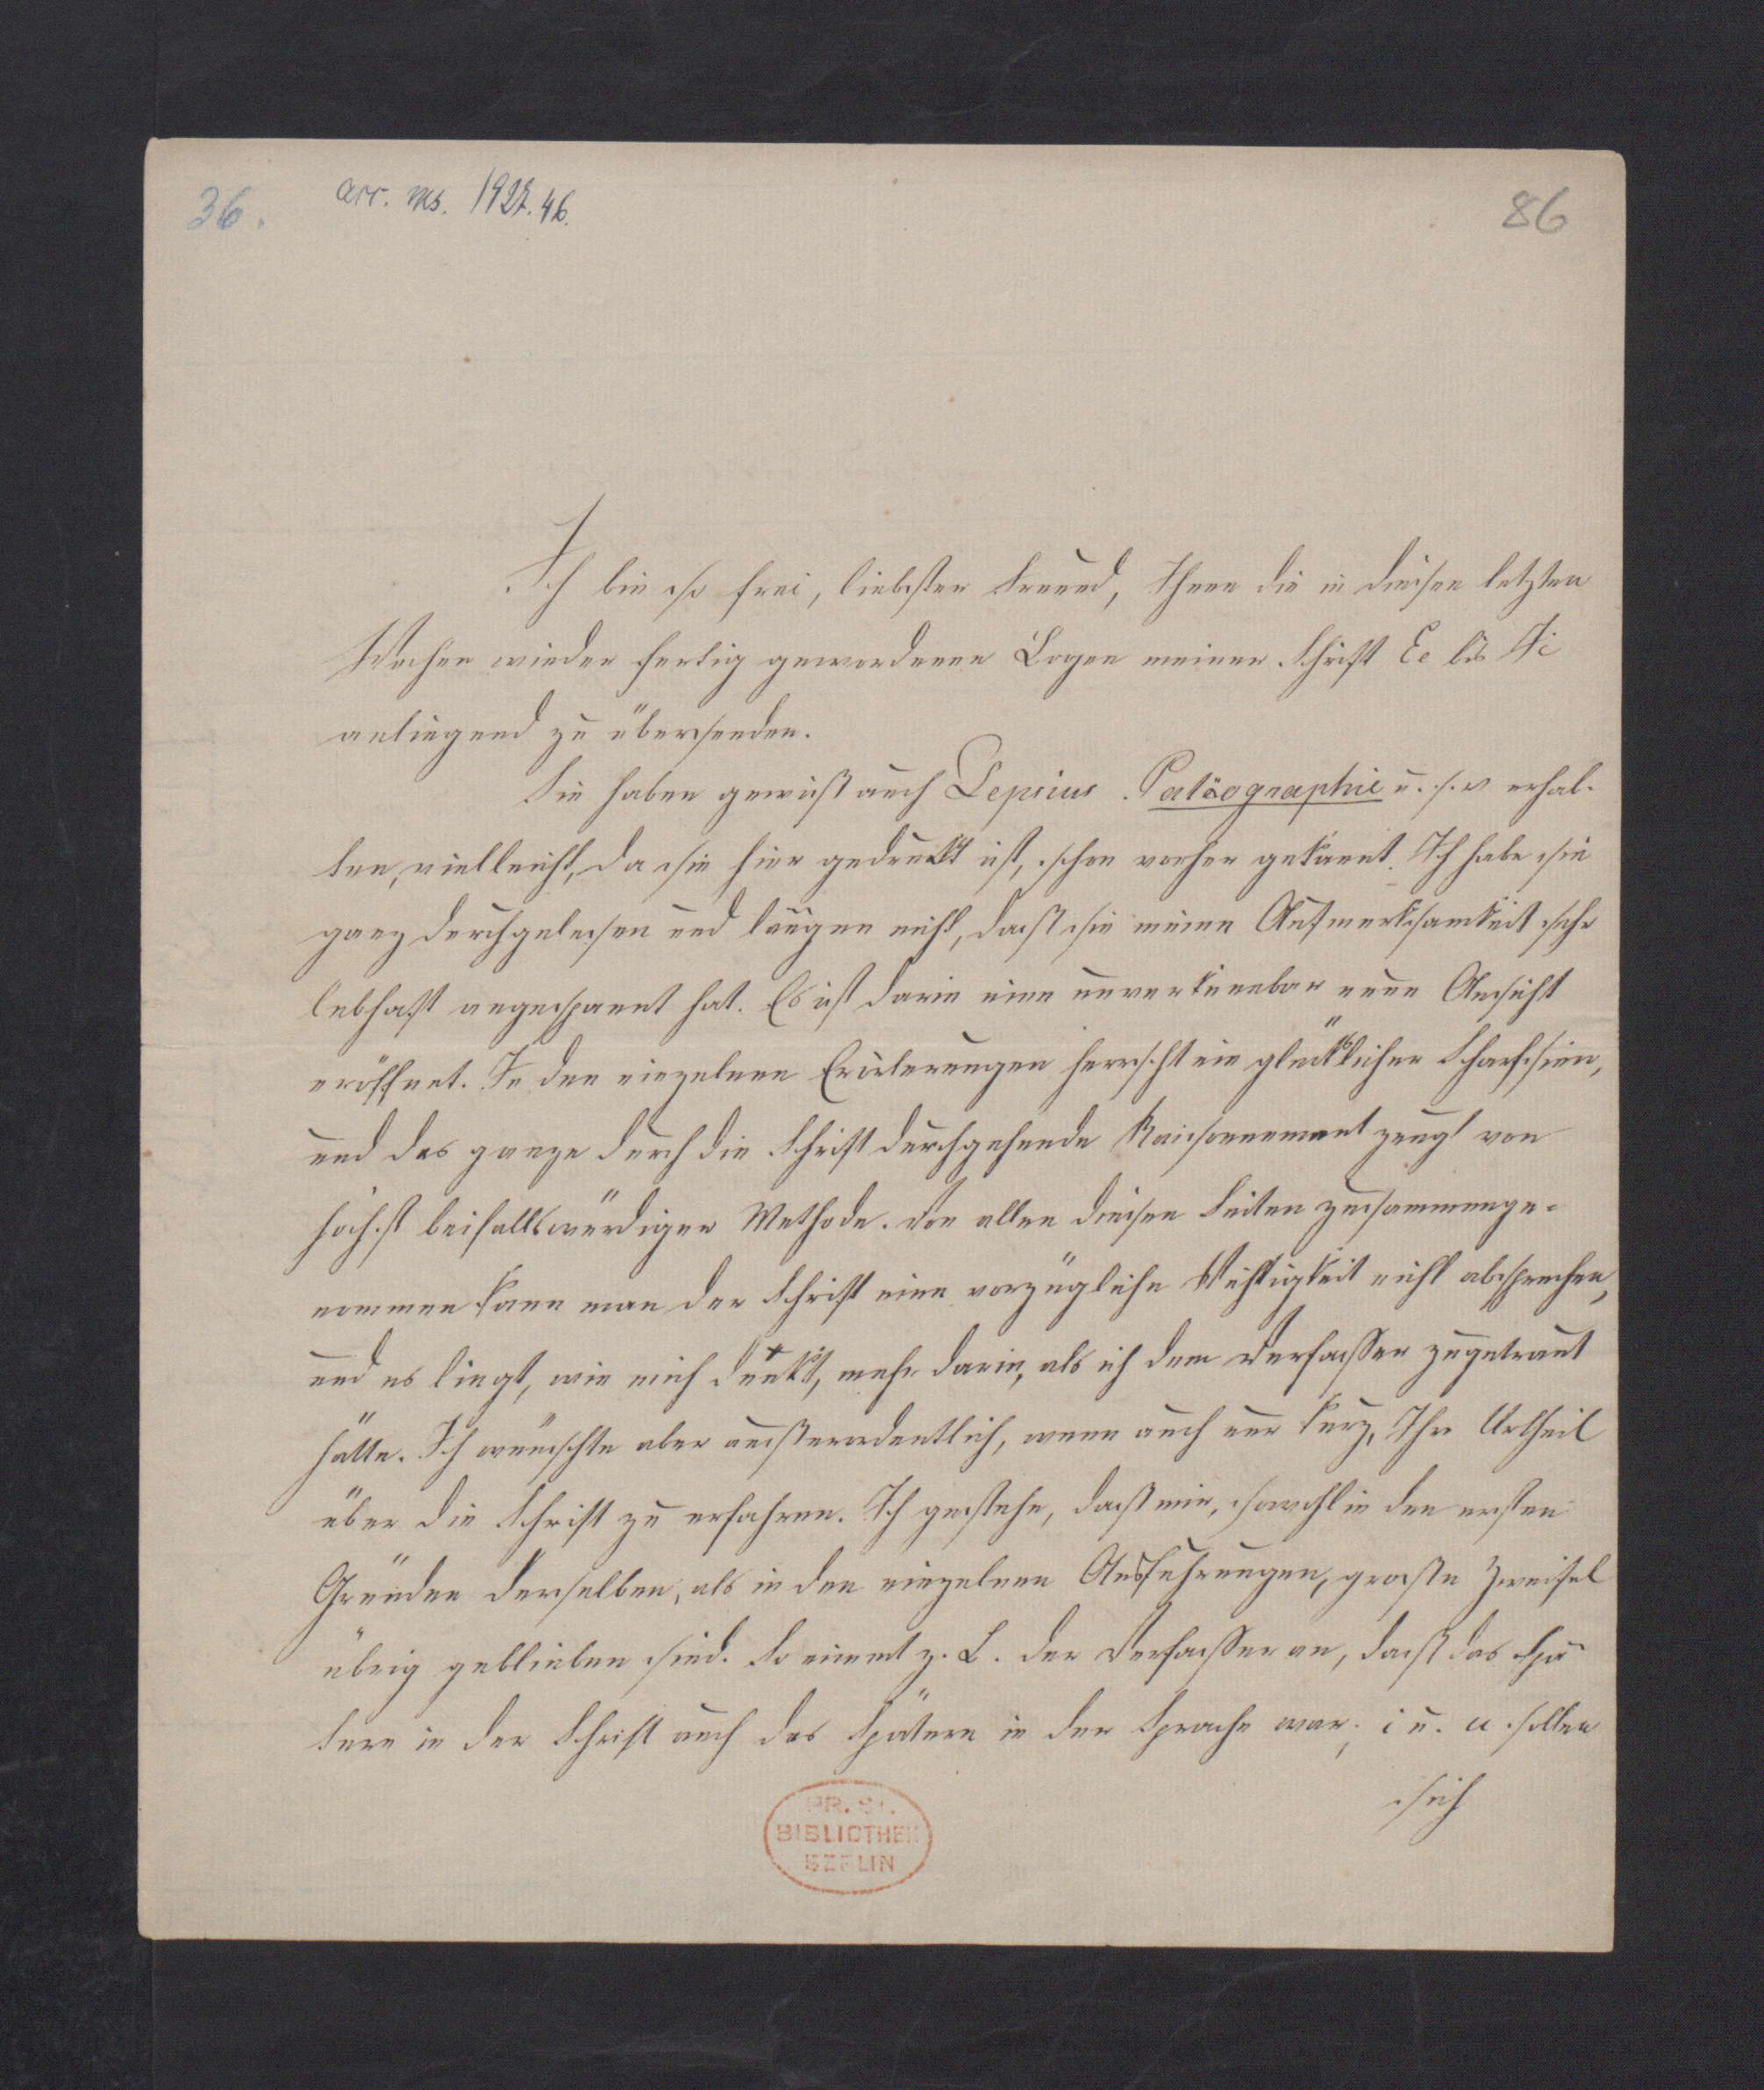 36.
acc. ms. 1927. 46.
86
Ich bin so frei, liebster Freund, Ihnen die in diesen letzten
Wochen wieder fertig gewordenen Bogen meiner Schrift Ee bis Ii
anliegend zu übersenden.
Sie haben gewiß auch Lepsius Paläographie u. s. w. erhal-
ten, vielleicht, da sie hier gedruckt ist, schon vorher gekannt. Ich habe sie
ganz durchgelesen und läugne nicht, daß sie meine Aufmerksamkeit sehr
lebhaft angespannt hat. Es ist darin eine unverkennbar neue Ansicht
eröffnet. In den einzelnen Erörterungen herrscht ein glücklicher Scharfsinn,
und das ganze durch die Schrift durchgehende Raisonnement zeugt von
höchst beifallswürdiger Methode. Von allen diesen Seiten zusammenge-
nommen kann man der Schrift eine vorzügliche Wichtigkeit nicht absprechen,
und es liegt, wie mich dünkt, mehr darin, als ich dem Verfasser zugetraut
hätte. Ich wünschte aber außerordentlich, wenn auch nur kurz, Ihr Urtheil
über die Schrift zu erfahren. Ich gestehe, daß mir, sowohl in den ersten
Gründen derselben, als in den einzelnen Ausführungen, große Zweifel
übrig geblieben sind. So nimmt z. B. der Verfasser an, daß das Spä
tere in der Schrift auch das Spätere in der Sprache war; i u. u sollen
sich
PR. ST.
BIBLIOTHEK
BERLIN